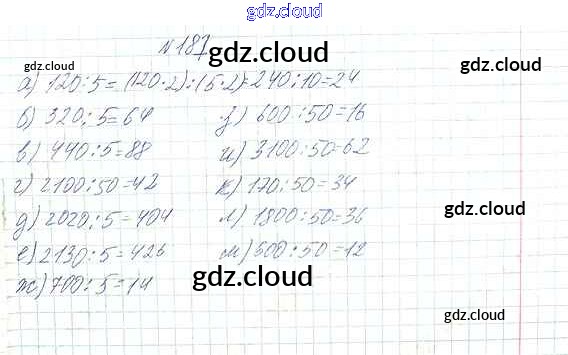 gdz.cloud
№ 187
gdz.cloud
gdz.cloud
gdz.cloud
а) 120:5=(120·2):(5·2)=240:10=24
б) 320:5=64
в) 440:5=88
г) 2100:50=42
д) 2020:5=404
е) 2130:5=426
ж) 700:5=14
з) 600:50=16
и) 3100:50=62
к) 170:50=34
л) 1800:50=36
м) 600:50=12
gdz.cloud
gdz.cloud
gdz.cloud
gdz.cloud